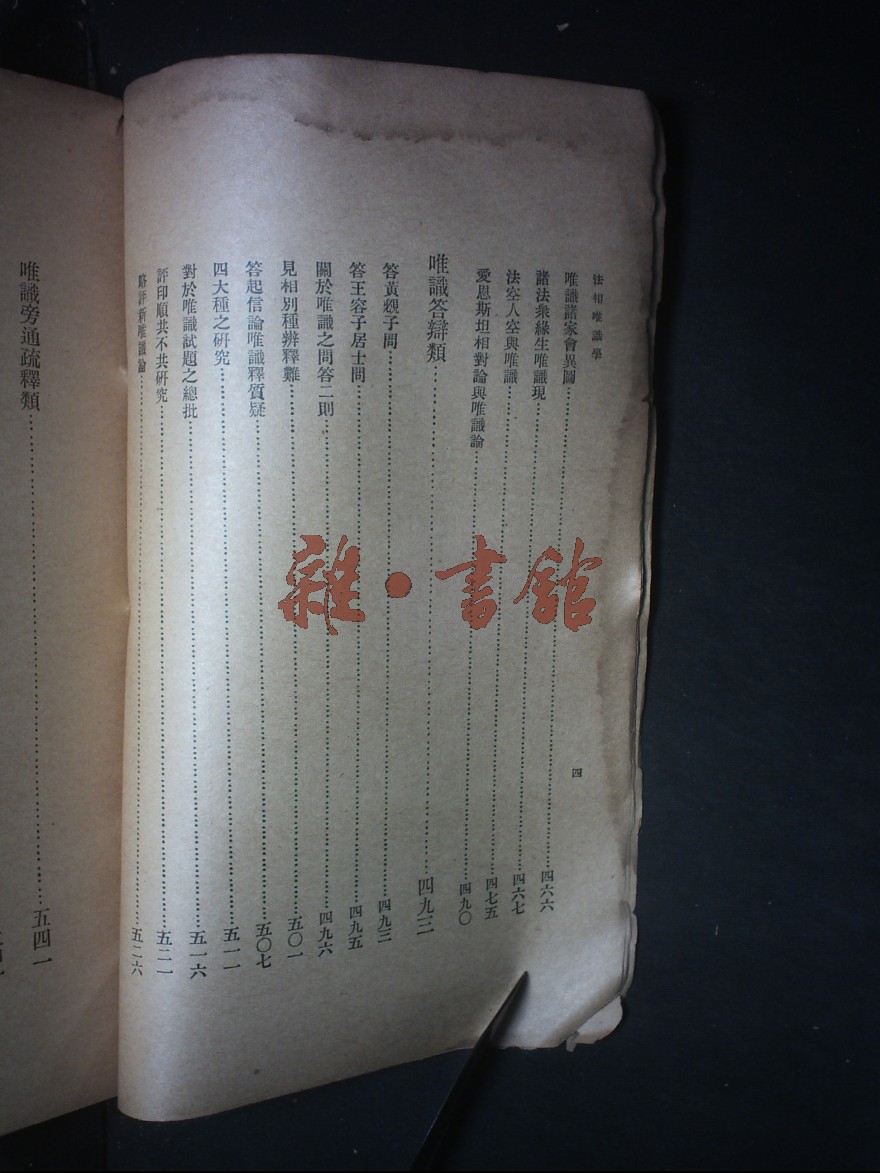 法相唯識學
四
唯識諸家會異圖……四六六
諸法衆緣生唯識現……四六七
法空人空與唯識……四七五
愛恩斯坦相對論與唯識論……四九〇
唯識答辯類……四九三
答黃問……四九三
答王容子居士問……四九五
關於唯識之問答二則……四九六
見相別種辨釋難……五〇一
答起信論唯識釋質疑……五〇七
四大種之研究……五一一
對於唯識試題之總批……五一六
評印順共不共研究……五二一
略評新唯識論……五二六
唯識旁通疏釋類……五四一
雜·書館